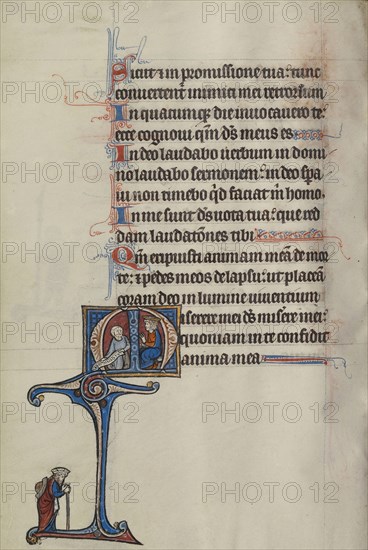 Sicut & in promissione tua: tunc
convertent inimici mei retrorsum
In quacumq; die invocavero te:
ecce cognovi qm ds meus es
In deo laudabo verbum in domi
no laudabo sermonem: in deo spa
vi non timebo qd faciat m homo
In me sunt ds vota tua: que red
dam laudatones tibi
Qm eripuisti animam meā de mor
te: & pedes meos de lapsu: ut placeā
coram deo in lumine viventium
Miserere mei ds misere mei:
quoniam in te confidit
anima mea
PHOTO 12